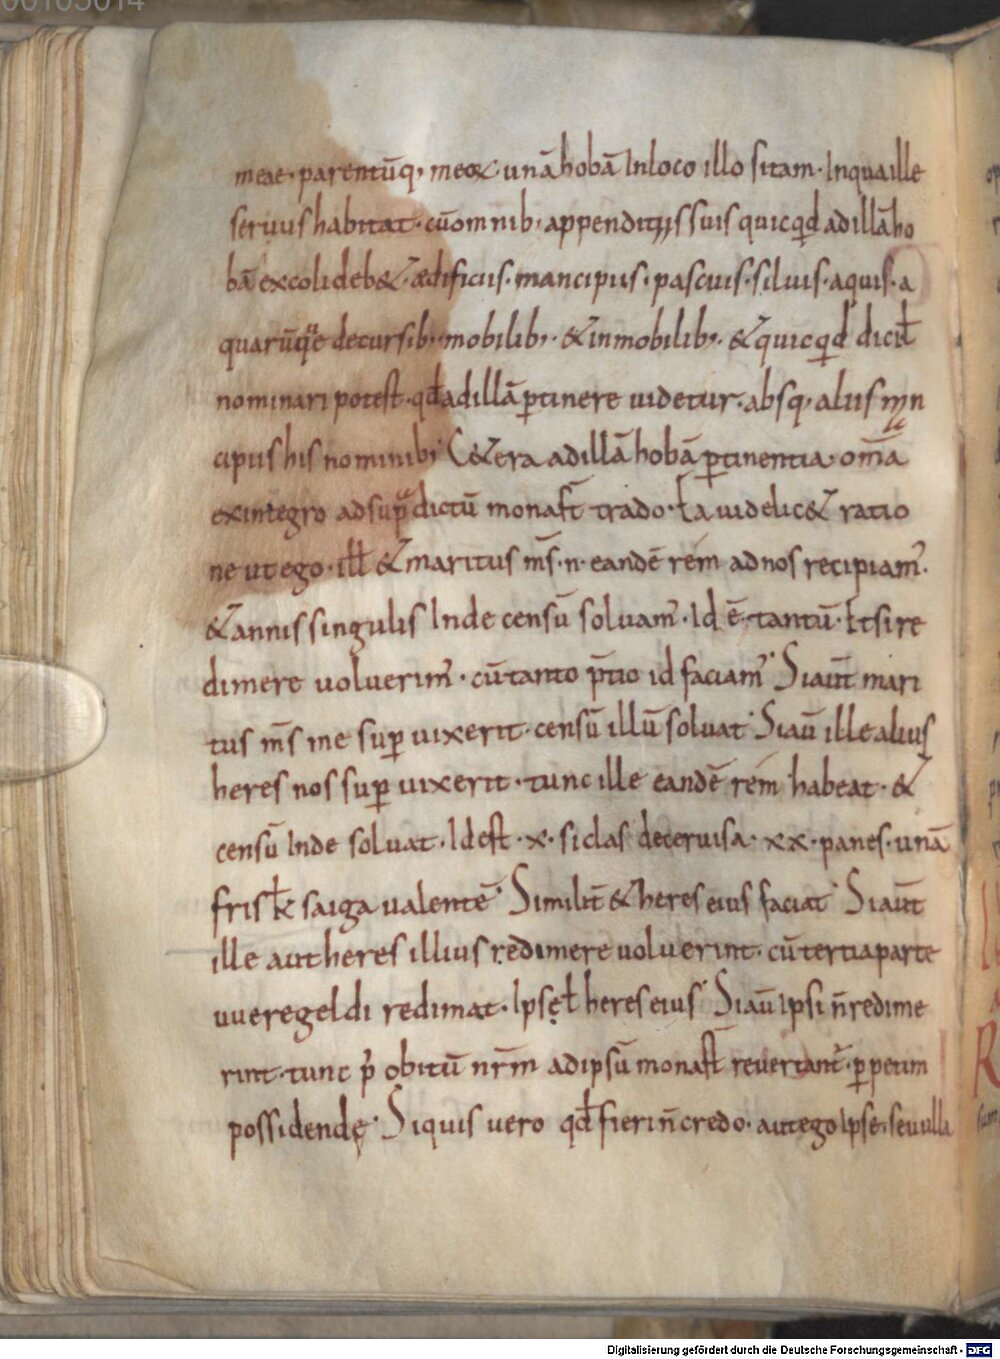 00105014
meae · parentūq; meoꝝ · unā hobā In loco illo sitam · In qua ille
seruus habitat · cū omnib; appenditiis suis quicqd ad illā ho
bā excoli deb& · ædificiis · mancipiis · pascuis · siluis · aquis · a
quarūq;e decursib; mobilib; · & inmobilib; · & quicqd dici ł
nominari potest · qđ ad illā ꝑtinere uidetur · absq; aliis man
cipiis his nominib; C&era ad illā hobā ꝑtinentia om̄a
ex integro ad sup̄dictū monasꞇ̄ trado · ła uidelic& ratio
ne ut ego · iłł & maritus m̄s · n · eandē rem ad nos recipiam' ·
& annis singulis Inde censū soluam' · Id ē · tantū · Et si re
dimere uoluerim' · cū tanto p̄tio id faciam' Si aūt mari
tus m̄s me suꝑ uixerit · censū illū soluat · Si aū ille alius
heres nos suꝑ uixerit · tunc ille eandē rem habeat · &
censū Inde soluat · Id est · x · siclas de ceruisa · xx · panes · unā
frisk̄ saiga ualentē · Similit̄ & heres eius faciat Si aūt
ille aut heres illius redimere uoluerint · cū tertia parte
uueregeldi redimat · Ipse ł heres eius Si aū Ipsi n̄ redime
rint · tunc p̄ obitū nr̄m ad ipsū monasꞇ̄ reuertant' · ꝑpetim
possidendę · Si quis uero qđ fieri n̄ credo · aut ego Ipse · seu ulla
Digitalisierung gefördert durch die Deutsche Forschungsgemeinschaft - DFG